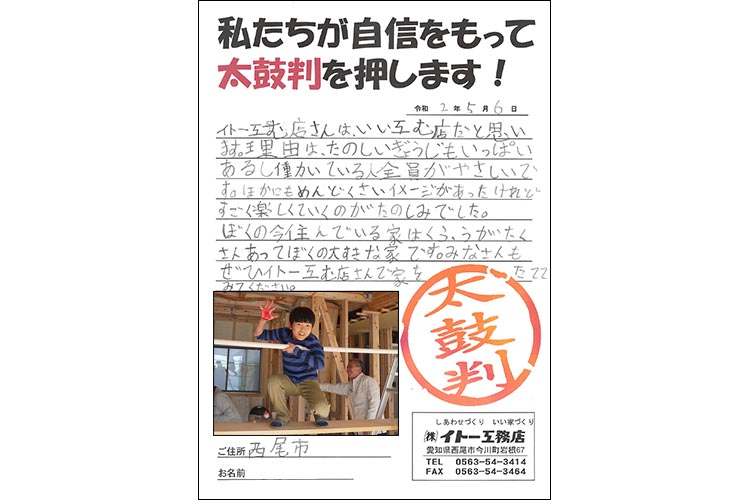 私たちが自信をもって
太鼓判を押します！
令和 2年5月6日
イトー工む店さんは、いい工む店だと思い
ます。理由は、たのしいぎょうじもいっぱい
あるし働いている人全員がやさしいで
す。ほかにもめんどくさいイメージがあったけれど
すごく楽しくていくのがたのしみでした。
ぼくの今住んでいる家はくふうがたく
さんあってぼくの大すきな家です。みなさんも
ぜひイトー工む店さんで家を たてて
みてください。
太鼓判
ご住所 西尾市
お名前
しあわせづくり いい家づくり
㈱イトー工務店
愛知県西尾市今川町岩根67
TEL 0563-54-3414
FAX 0563-54-3464